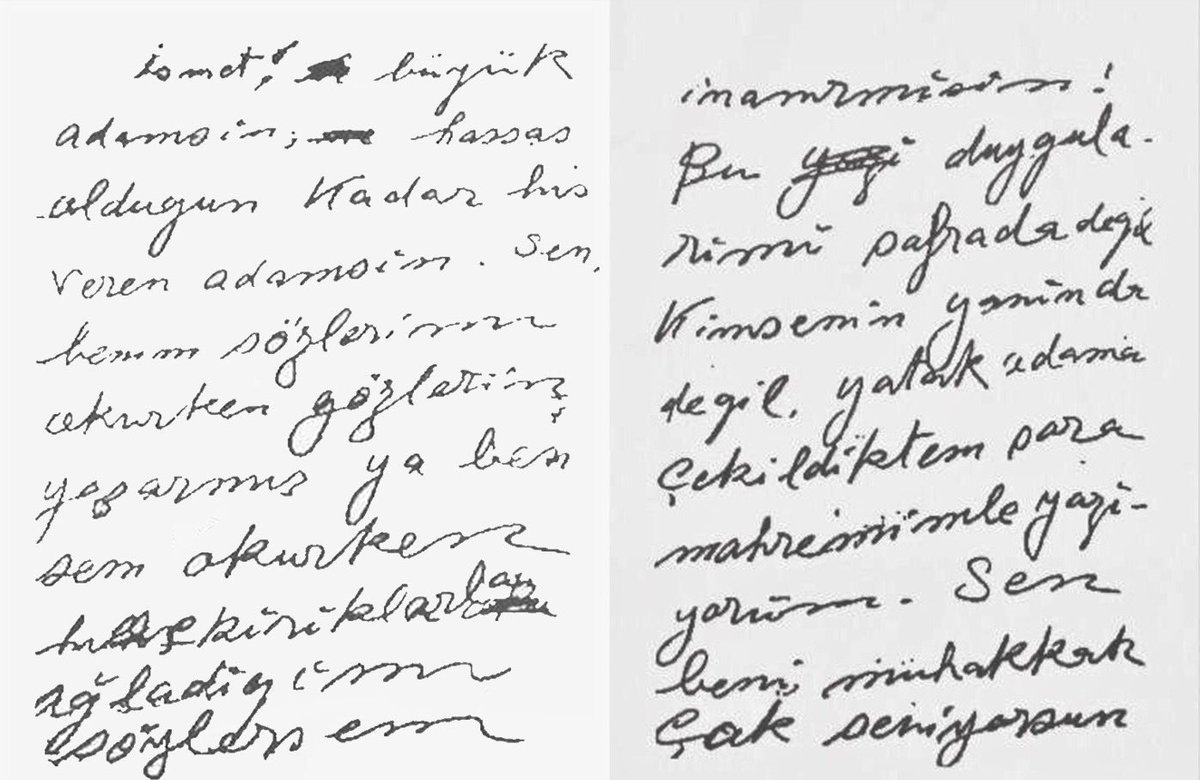 ismet! büyük
adamsin; hassas
oldugun Kadar his
veren adamsin. Sen,
benim sözlerimi
okurken gözlerin
yaşarmış ya ben
seni okurken
hıçkiriklarlan
ağladiğimi
söylersem
inanırmisin!
Bu duygula-
rimi sofrada değil
Kimsenin yaninda
degil, yatak odama
Çekildikten sora
mahremimle yazi-
yorum. Sen
beni muhakkak
Çok seviyorsun